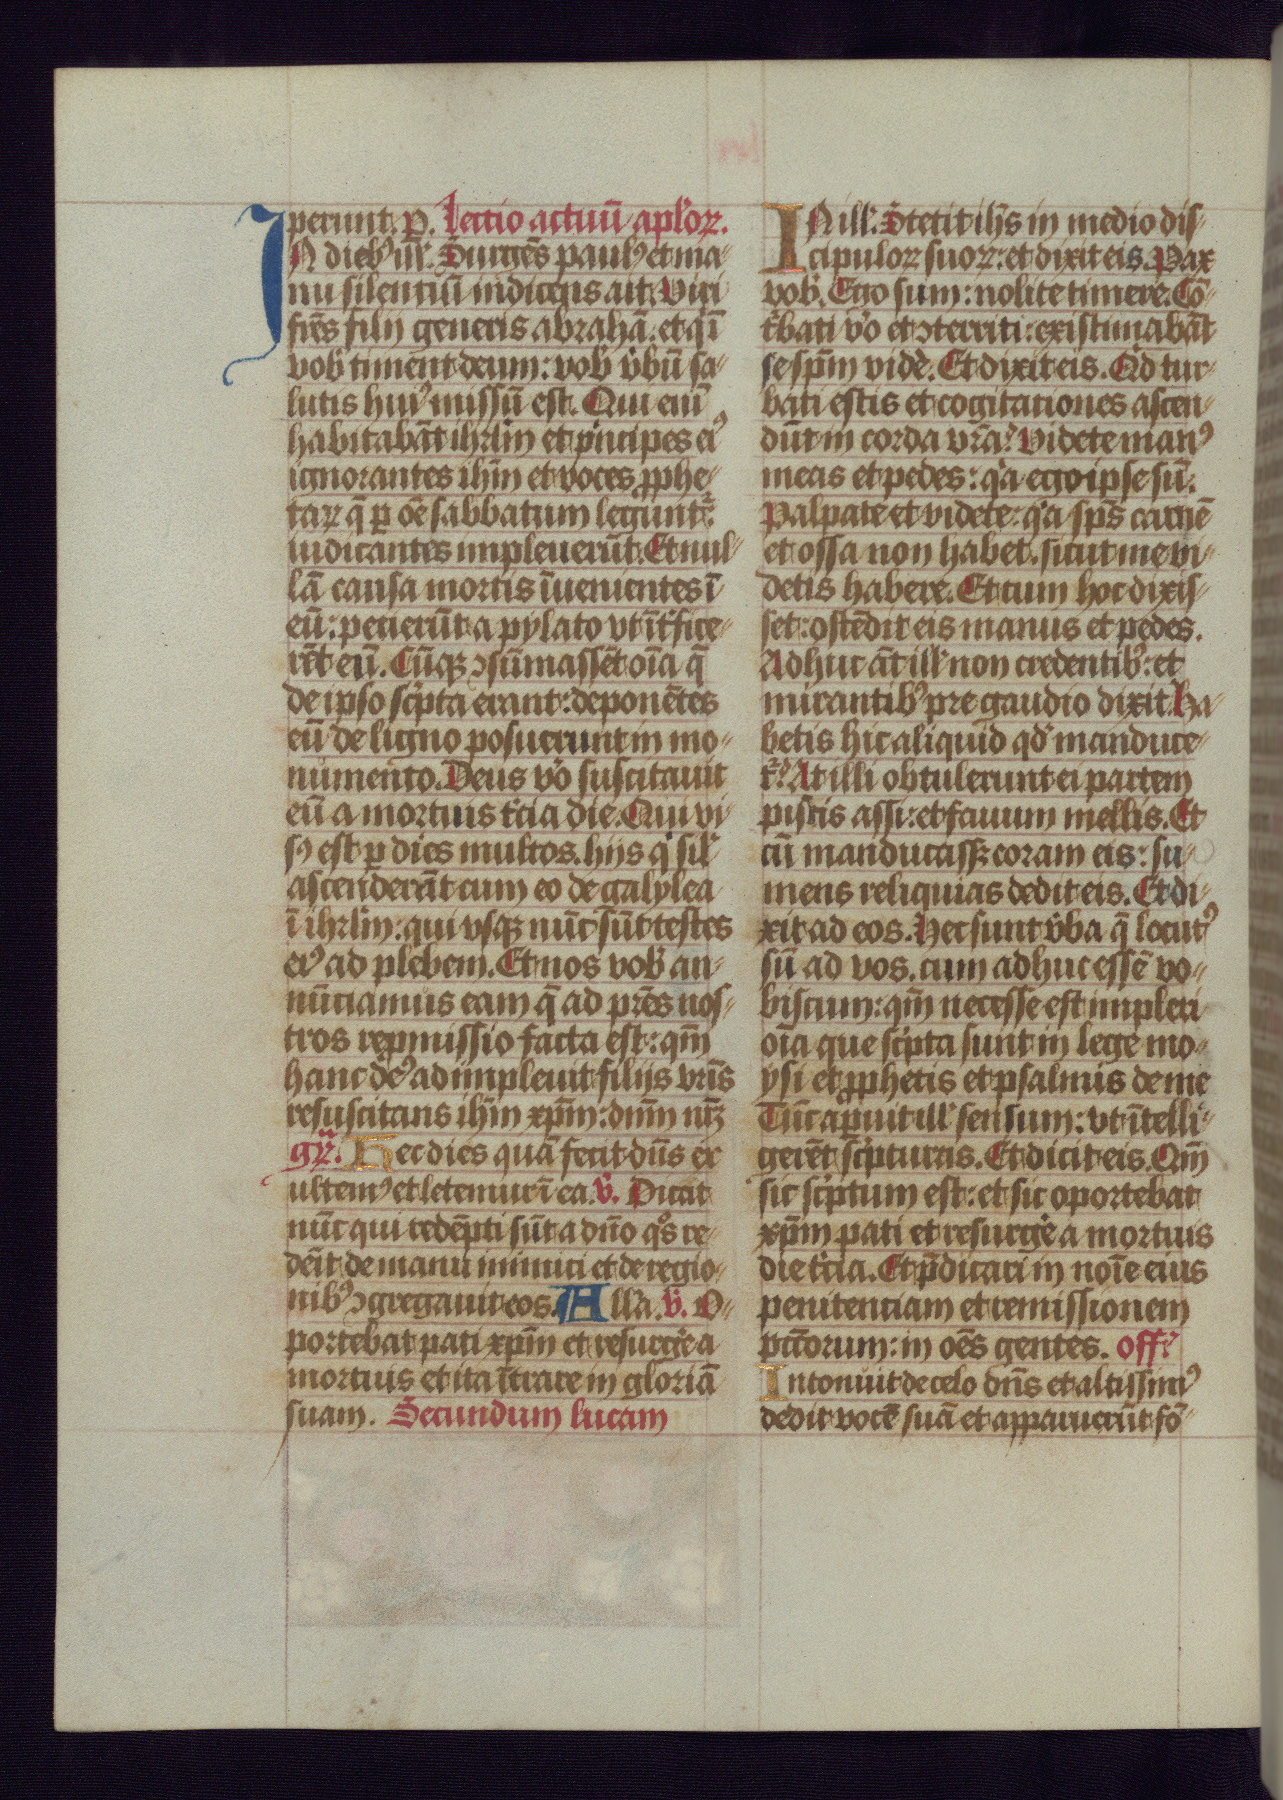 perunt. P. Lectio actuū aplōꝝ.
IN diebꝰ ill'. Surgēs paulꝰ et ma-
nu silentiū indicens ait. Viri
frēs filij generis abrahā. et qͥ ī
vob' timent deum: vob' v̄bū sa-
lutis huiꝰ missū est. Qui eni
habitabāt ihrl̄m et pͥncipes eiꝰ
ignorantes ihm̄ et voces ꝓphe-
taꝝ q̄ ꝑ oē sabbatum legunt᷑
iudicantes impleuerūt. Et nul-
lā causa mortis īuenientes ī
eū: petierūt a pylato vt īt͛fice-
rēt eū. Cūqꝫ ꝯsūmassēt oīa q̄
de ipso scͥpta erant: deponētes
eū de ligno posuerunt in mo-
numento. Deus v̊o suscitauit
eū a mortuis t͛cia die. Qui vi-
sꝰ est ꝑ dies multos. hijs qͥ sil'
ascenderāt cum eo de galylea
ī ihrl̄m: qui vsqꝫ nūc sūt testes
eiꝰ ad plebem. Et nos vob' an-
nūciamus eam q̄ ad pr̄es nos-
tros repmissio facta est: qm̄
hanc deꝰ adimpleuit filijs vr̄is
resuscitans ihm̄ xp̄m: dnm̄ nr̄ꝫ
gr̄. Hec dies quā fecit dn̄s ex
ultemꝰ et letemur ī ea. v̄. Dicāt
nūc qui redēpti sūt a dn̄o qͦs re-
dēīt de manu inimici et de regio-
nibꝰ ꝯgregauit eos. All'a. v̄. O-
portebat pati xp̄m et resurge͛ a
mortuis et ita ītrare in gloriā
suam. Secundum lucam
IN ill'. Stetit ihs̄ in medio dis-
cipuloꝝ suoꝝ: et dixit eis. Pax
vob'. Ego sum: nolite timere. Cō-
t͛bati v̊o et ꝯterriti: existimabāt
se sp̄m vide͛. Et dixit eis. Qd tur-
bati estis et cogitationes ascen-
dūt in corda vr̄a? Videte manꝰ
meas et pedes: qͥa ego ipse sū.
Palpate et videte: qͥa sp̄s carnē
et ossa non habet. sicut me vi-
detis habere. Et cum hoc dixis-
set: ostēdit eis manus et pedes.
Adhuc āt ill' non credentibꝰ: et
mirantibꝰ pre gaudio dixit. Ha-
betis hic aliquid qd' manduce-
t᷑? At illi obtulerunt ei partem
piscis assi: et fauum mellis. Et
cū manducassꝫ coram eis: su-
mens reliquias dedit eis. Et di-
xit ad eos. Hec sunt v̄ba q̄ locutꝰ
sū ad vos. cum adhuc essē vo-
biscum: qm̄ necesse est impleri
oīa que scͥpta sunt in lege mo-
ysi et ꝓphetis et psalmis de me
Tūc apuit ill' sensum: vt ītelli-
gerēt scͥpturas. Et dicit eis. Qm̄
sic scͥptum est: et sic oportebat
xp̄m pati et resurge͛ a mortuis
die t͛cia. Et p̄dicari in noīe eius
penitenciam et remissionem
pcc̄torum: in oēs gentes. off'
Intonuit de celo dn̄s et altissimꝰ
dedit vocē suā et apparuerūt fō-